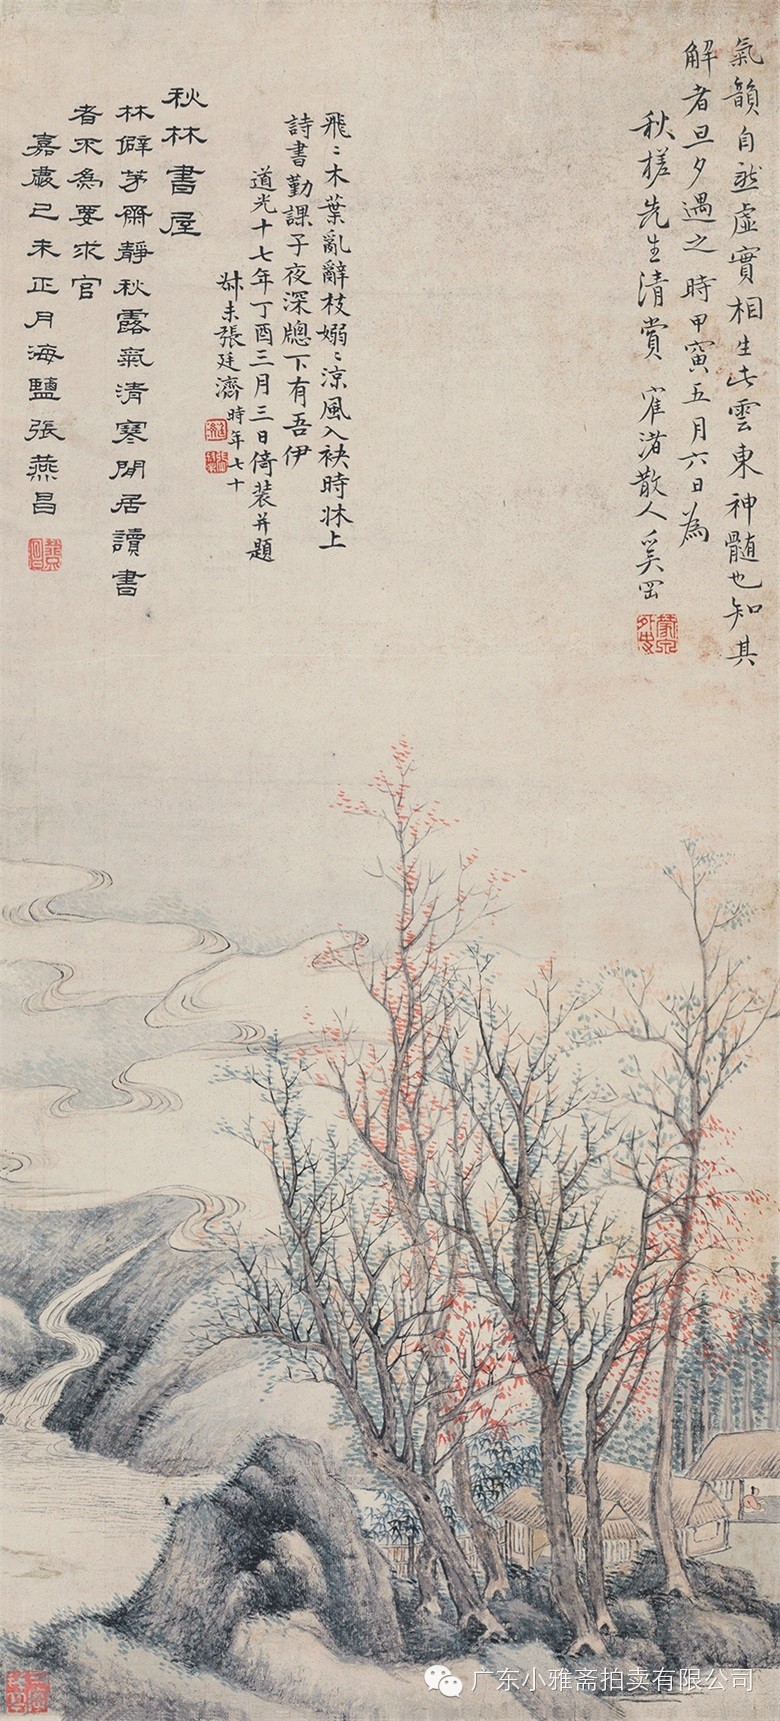 氣韻自然虛實相生此雲東神髓也知其
解者旦夕遇之時甲寅五月六日為
秋槎先生清賞 雚渚散人奚岡
飛〻木葉亂辭枝嫋〻涼風入袂時牀上
詩書勤課子夜深牕下有吾伊
道光十七年丁酉三月三日倚裝并題
尗未張廷濟時年七十
秋林書屋
林僻茅齋靜秋露氣清寒閒居讀書
者不為要求官
嘉慶己未正月海鹽張燕昌
广东小雅斋拍卖有限公司